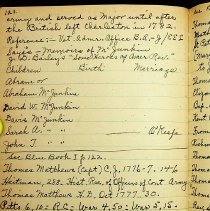 122.
army and served as Major until after
the British left Charleston in 1782.
Reference:- Vet. Admr. Office B.A.-J/CEI
Says - Memoirs of McJunkin
J.D. Bailey's "Some Heroes of Amer. Rev.
Children Birth Marriage
Abram or
Abraham McJunkin
David W. McJunkin
Davis McJunkin
Sarah A. " " O'Keefe
John T. " "
See Blue Book I p 122.
Thomas Matthews (Capt) C.J, 1776-7. 146
Heitman, 283. Hist. Reg. of Officers of Cont. Army
Thomas Matthews H.D. Oct 1777.30.
Pitts 6,10: P.C: War 4,50: War 5,15.